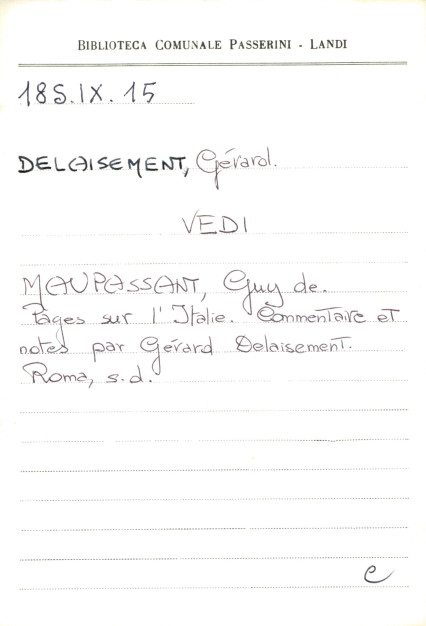 BIBLIOTECA COMUNALE PASSERINI - LANDI
18S.IX.15
DELAISEMENT, Gérard.
VEDI
MAUPASSANT, Guy de.
Pages sur l'Italie. Commentaire et
notes par Gérard Delaisement.
Roma, s.d.
C